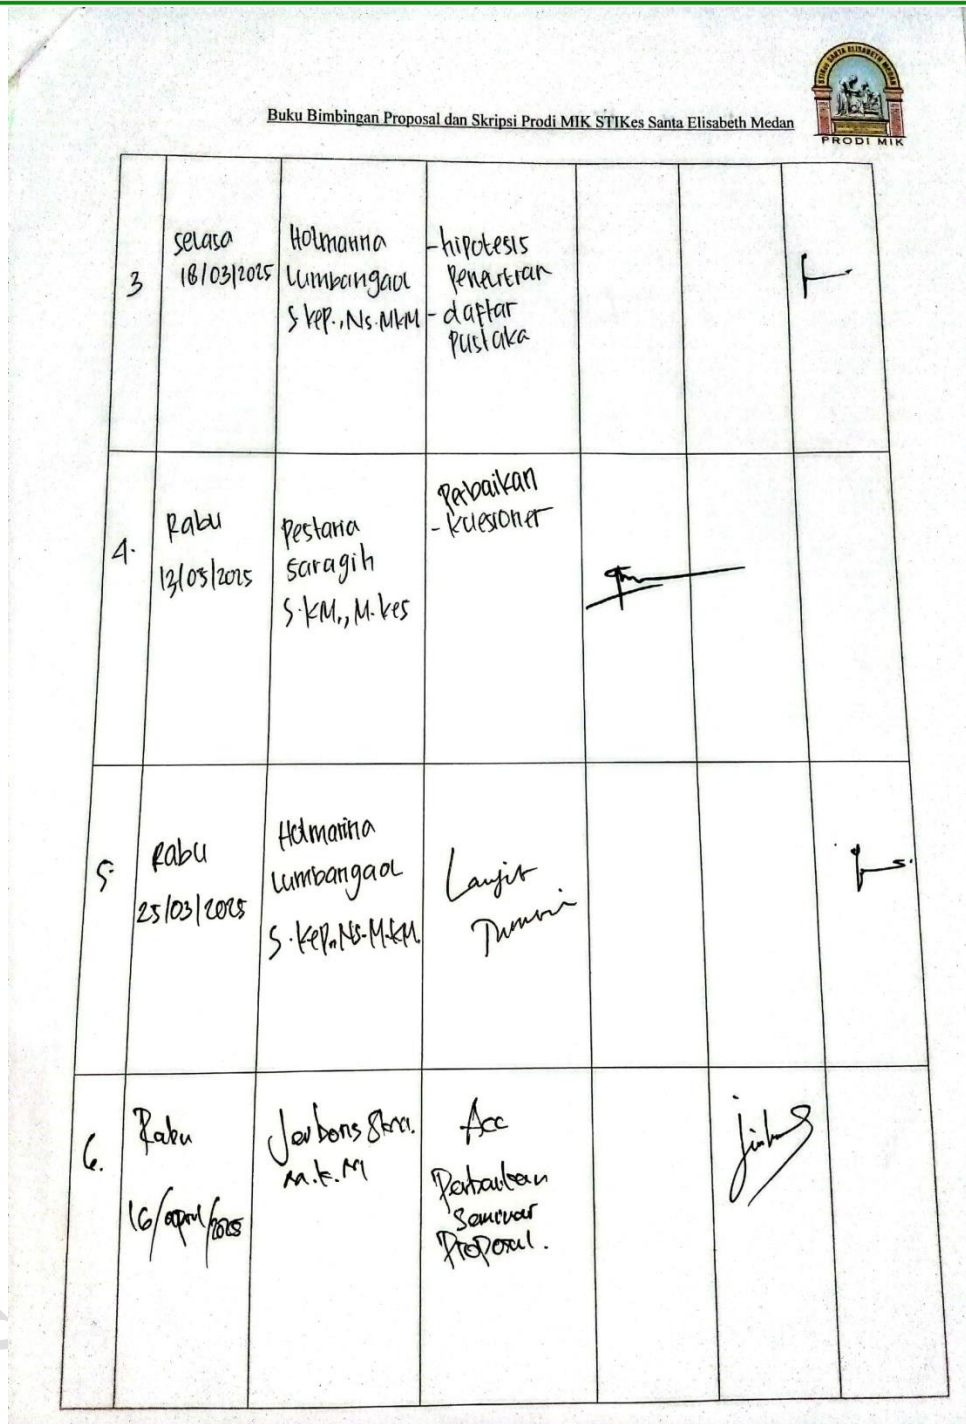 Buku Bimbingan Proposal dan Skripsi Prodi MIK STIKes Santa Elisabeth Medan
STIKes SANTA ELISABETH MEDAN
PRODI MIK
3
selasa
18/03/2025
Holmarina
Lumbangaol
S.Kep.,Ns.MKM
-hipotesis
Penelitian
- daftar
Pustaka
4.
Rabu
13/03/2025
Pestaria
Saragih
S.KM., M.Kes
Perbaikan
- kuesioner
5.
Rabu
25/03/2025
Holmarina
Lumbangaol
S.Kep.,Ns.M.KM.
Lanjut
6.
Rabu
16/april/2025
M.K.M
Acc
Perbaikan
Seminar
Proposal.